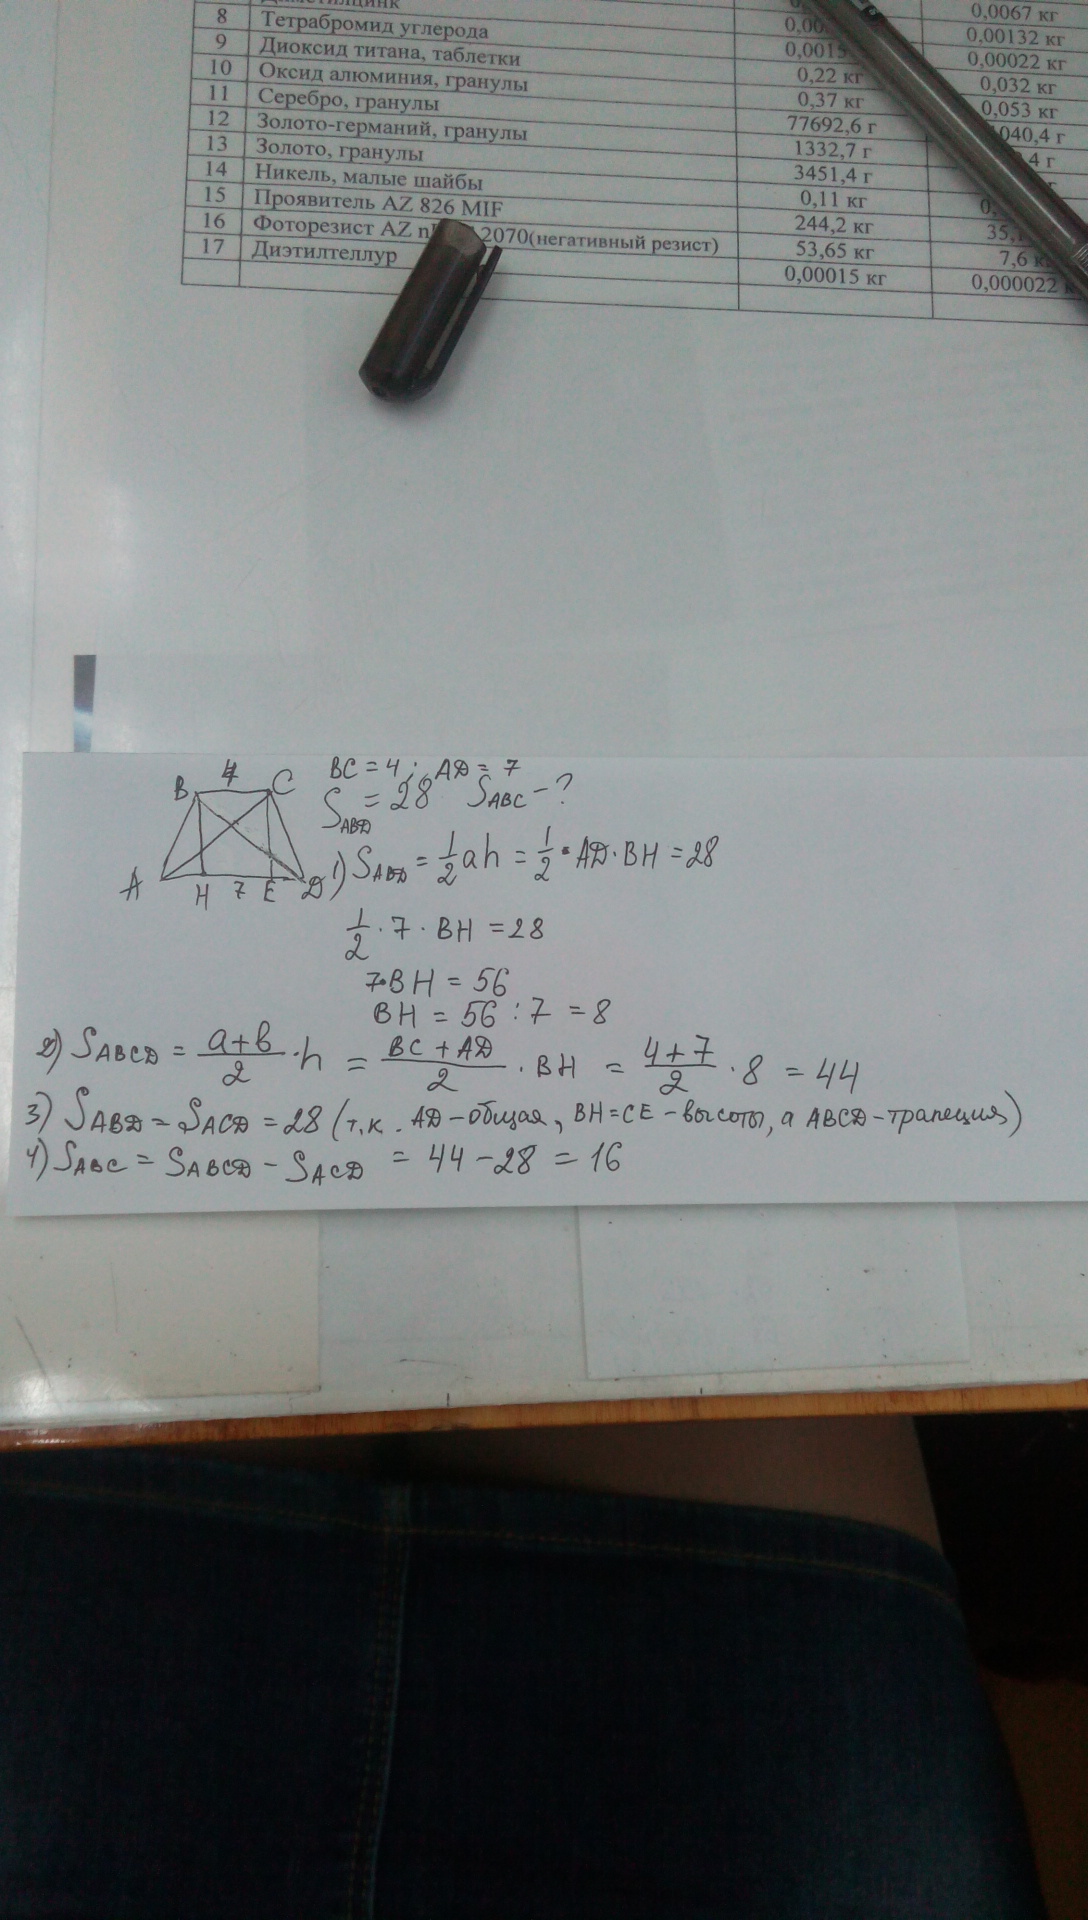 0,0067 кг
8 Тетрабромид углерода 0,00132 кг
9 Диоксид титана, таблетки 0,00022 кг
10 Оксид алюминия, гранулы 0,22 кг 0,032 кг
11 Серебро, гранулы 0,37 кг 0,053 кг
12 Золото-германий, гранулы 77692,6 г
13 Золото, гранулы 1332,7 г
14 Никель, малые шайбы 3451,4 г
15 Проявитель AZ 826 MIF 0,11 кг
16 Фоторезист AZ 2070(негативный резист) 244,2 кг
17 Диэтилтеллур 53,65 кг 7,6
0,00015 кг 0,000022
B 4 C
A H 7 E D
BC = 4; AD = 7
S ABD = 28 S ABC - ?
1) S ABD = 1/2 ah = 1/2 · AD · BH = 28
1/2 · 7 · BH = 28
7·BH = 56
BH = 56 : 7 = 8
2) S ABCD = (a+b)/2 · h = (BC + AD)/2 · BH = (4+7)/2 · 8 = 44
3) S ABD = S ACD = 28 (т.к. AD - общая, BH = CE - высоты, а ABCD - трапеция)
4) S ABC = S ABCD - S ACD = 44 - 28 = 16